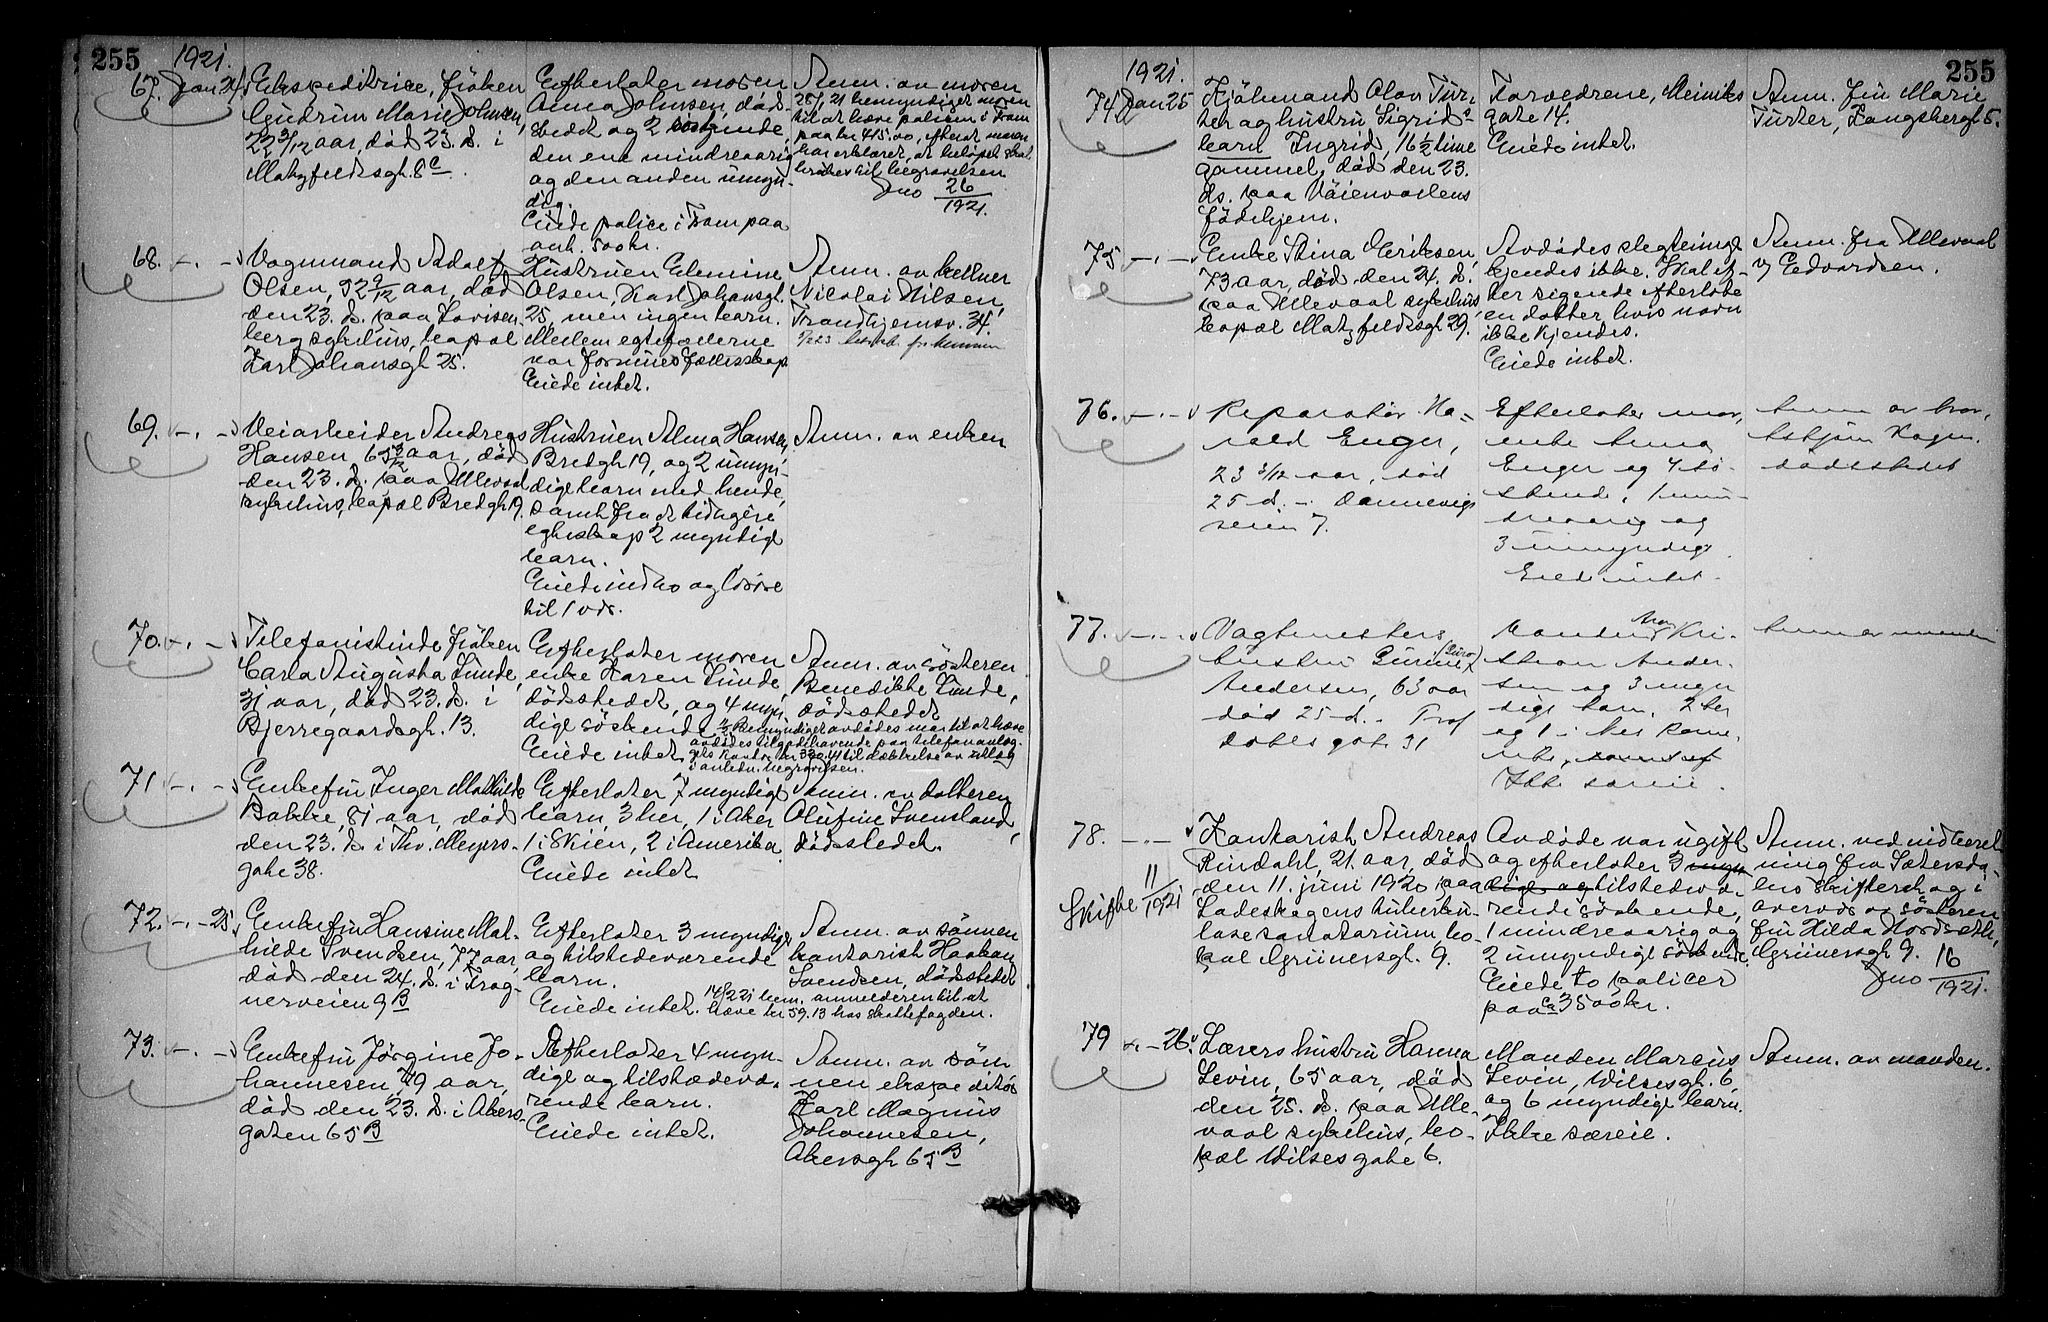 255
1921.
67. Jan 24
Ekspeditrice, frøken
Gudrun Marie Johnsen,
22 3/12 aar, død 23. ds. i
Maltzfeldtsgt. 8c.
Efterlater moren
Anna Johnsen, død-
stedet og 2 søskende,
den ene mindreaarig
og den anden umyn-
dig.
Eiede police i Fram paa
ant. 500 kr.
Anm. av moren
28/1 21 bemyndiget moren
til at hæve policen i Fram
paa kr 415.00, efterat moren
har erklæret, at beløpet skal
brukes til begravelsen
Jno 26/1921.
68. -.-
Vognmand Adolf
Olsen, 92 9/12 aar, død
den 23. ds. paa Lovisen-
berg sykehus, bopæl
Karl Johansgt 25.
Hustruen Elemine
Olsen, Karl Johansgt.
25, men ingen barn.
Mellem egtefællerne
var formuesfællesskap
Eiede intet.
Anm. av kelner
Nicolai Nilsen,
Trondhjemsv. 34.
69. -.-
Veiarbeider Andreas
Hansen, 65 3/12 aar, død
den 23. ds. paa Ullevaal
sykehus, bopæl Bredgt 19.
Hustruen Alma Hansen,
Bredgt 19, og 2 umyn-
dige barn med hende,
samt fra et tidligere
egteskap 2 myndige
barn.
Eiede indbo og løsøre
til 1 vds.
Anm. av enken
70. -.-
Telefonistinde frøken
Carla Augusta Lunde,
31 aar, død 23. ds. i
Bjerregaardsgt. 13.
Efterlater moren
enke Karen Lunde
dødstedet, og 4 myn-
dige søskende.
Eiede intet.
Anm. av søsteren
Benedikte Lunde,
dødstedet
Bemyndiget avdødes mor til at hæve
avdødes tilgodehavende paa telefonanlæg-
gets kontor kr 330.41 til dækkelse av utlæg
i anledn. begravelsen.
71 -.-
Enkefru Inger Mathilde
Bakke, 81 aar, død
den 23. ds. i Thv. Meyers-
gate 38.
Efterlater 7 myndige
barn, 3 her, 1 i Aker
1 i Skien, 2 i Amerika
Eiede intet
Anm. av datteren
Olufine Svensland,
dødstedet.
72. -.- 25.
Enkefru Hansine Mat-
hilde Svendsen, 77 aar,
død den 24. ds. i Frog-
nerveien 9 B
Efterlater 3 myndige
og tilstedeværende
barn.
Eiede intet.
Anm. av sønnen
kontorist Haakon
Svendsen, dødstedet
14/2 21 bem. anmelderen til at
hæve kr 59.13 hos skattefogden.
73. -.-
Enkefru Jørgine Jo-
hannesen, 79 aar,
død den 23. ds. i Akers-
gaten 65 B
Efterlater 4 myn-
dige og tilstedevæ-
rende barn.
Eiede intet.
Anm. av søn-
nen ekspeditør
Karl Magnus
Johannesen,
Akersgt 65 B
255
1921.
74 Jan 25
Hjølmand Olav Tur-
ter og hustru Sigrids
barn Ingrid, 16 1/2 time
gammel, død den 23.
ds. paa Vøienvoldens
fødehjem.
Forældrene, Meinichs
gate 14.
Eiede intet.
Anm. fru Marie
Turter, Langsbergt 5.
75. -.-
Enke Stina Eriksen,
73 aar, død den 24. ds.
paa Ullevaal sykehus,
bopæl Maltzfeldtsgt 29.
Avdødes slegtninge
kjendes ikke. Skal ef-
ter sigende efterlate
en datter hvis navn
ikke kjendes.
Eiede intet.
Anm. fra Ullevaal
v/ Edvardsen.
76. -.-
Reparatør Ha-
rald Enger,
23 3/12 aar, død
25 ds. - Dannevigs
veien 7.
Efterlater mor,
enke Anna
Enger og 4 sø-
skende, 1 min-
dreaarig og
3 umyndige.
Eiede intet.
Anm av bror,
dødstedet
77. -.-
Vagtmesters
hustru Gurine (Guro)
Andersen, 63 aar
død 25 ds. - Tost
dobls gate 31
Manden Kri-
stian Ander-
sen og 3 myn-
dige barn, 2 her
og 1 i
Ikke særeie.
Anm av manden
78. -.-
Skifte 11/1921
Kontorist Andreas
Rindahl, 21 aar, død
den 11. juni 1920 paa
Ladeskogens tuberku-
losesanatorium bo-
pæl Grünersgt. 9.
Avdøde var ugift
og efterlater 3 myn-
dige og tilstedevæ-
rende søskende,
1 mindreaarig og
2 umyndige søskende.
Eiede to policer
paa ca 3500 kr.
Anm. ved indberet-
ning fra Sætersda-
lens skifteret og i
avervær av søsteren
fru Hilda Nordseth,
Grünersgt 9.
Jno 16/1921.
79 -.- 26.
Lærers hustru Hanna
Levin, 65 aar, død
den 25. ds. paa Ulle-
vaal sykehus, bo-
pæl Wilsesgate 6.
Manden Marcus
Levin, Wilsesgt. 6,
og 6 myndige barn.
Ikke særeie.
Anm. av manden.